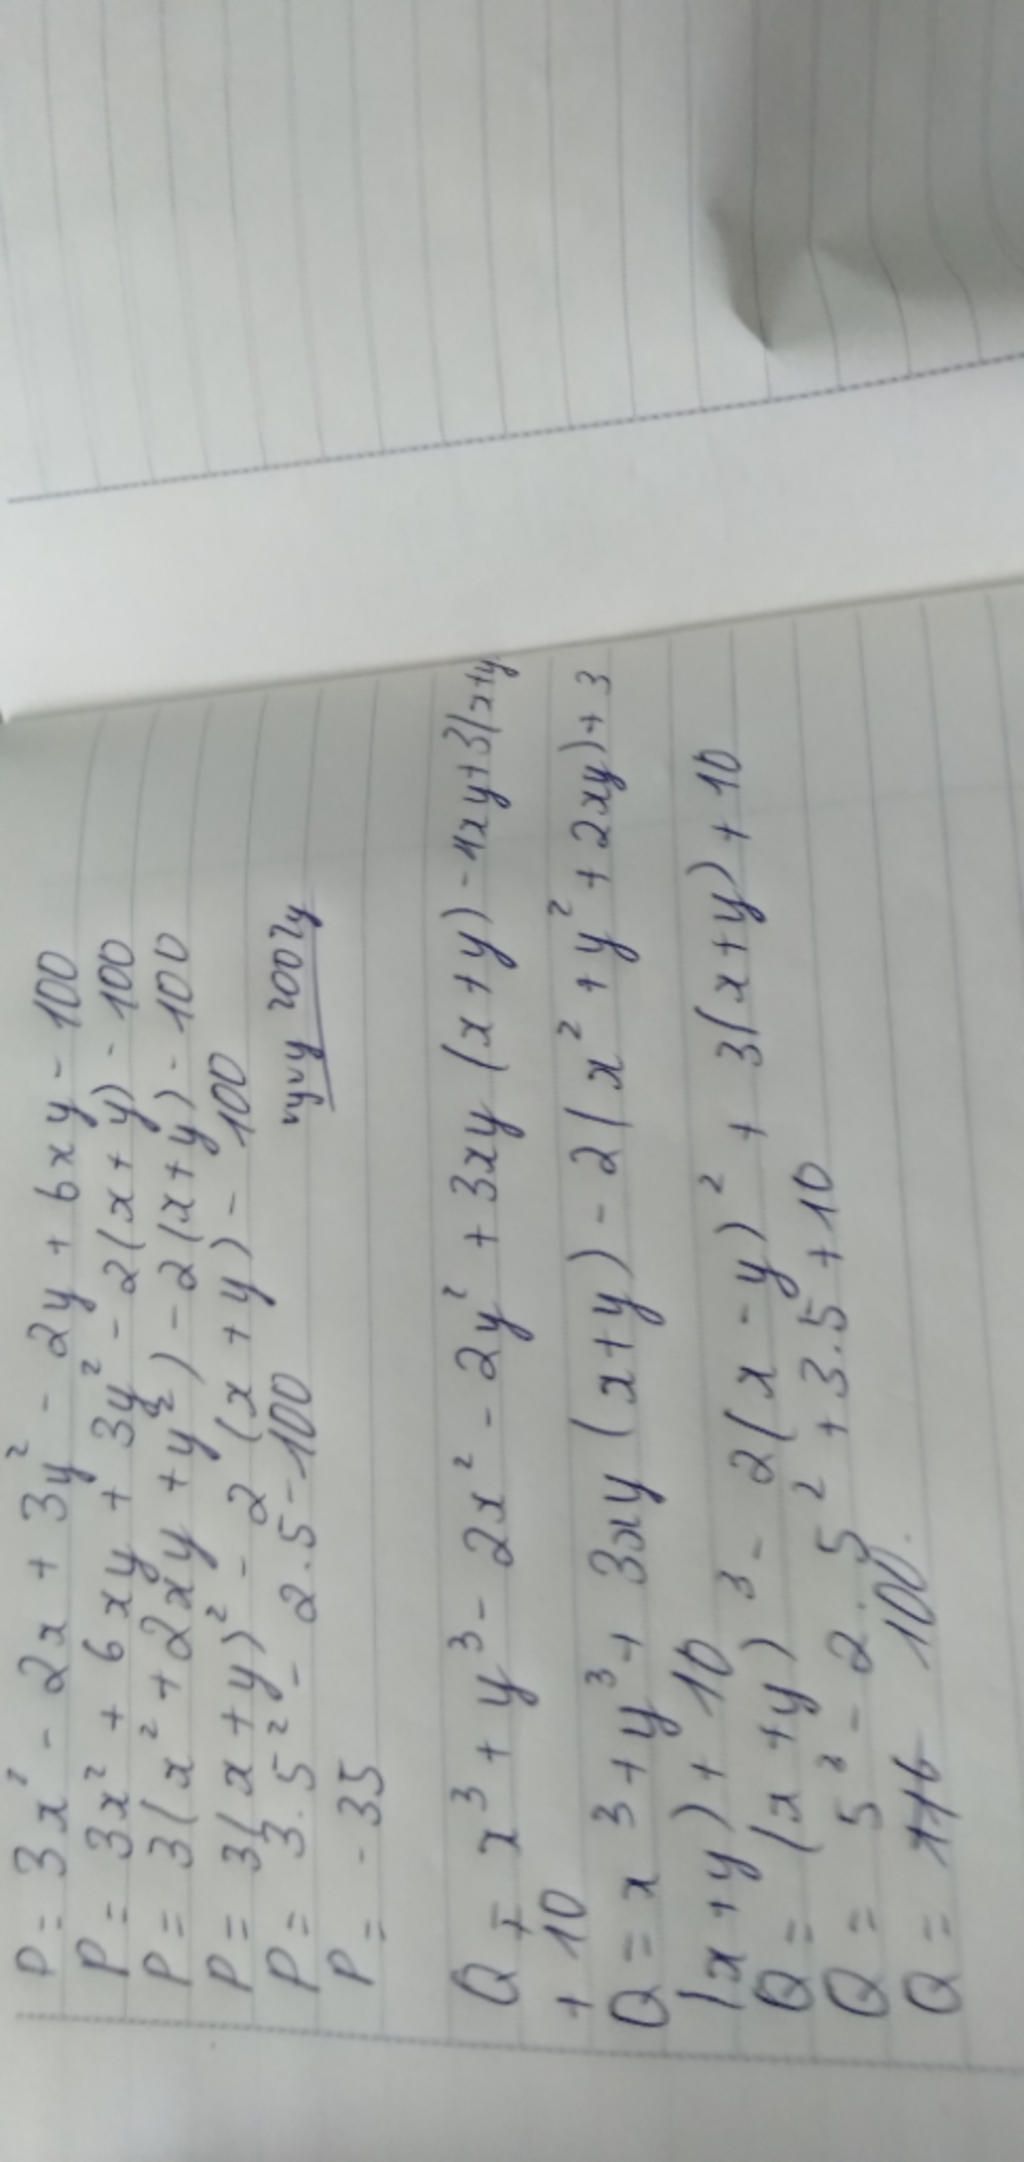 P = 3x² - 2x + 3y² - 2y + 6xy - 100
P = 3x² + 6xy + 3y² - 2(x+y) - 100
P = 3(x² + 2xy + y²) - 2(x+y) - 100
P = 3(x+y)² - 2(x+y) - 100
P = 3.5² - 2.5 - 100
P = -35
Q = x³ + y³ - 2x² - 2y² + 3xy(x+y) - 4xy + 3(x+y
+ 10
Q = x³ + y³ + 3xy(x+y) - 2(x² + y² + 2xy) + 3
(x+y) + 10
Q = (x+y)³ - 2(x-y)² + 3(x+y) + 10
Q = 5³ - 2.5² + 3.5 + 10
Q = 100.